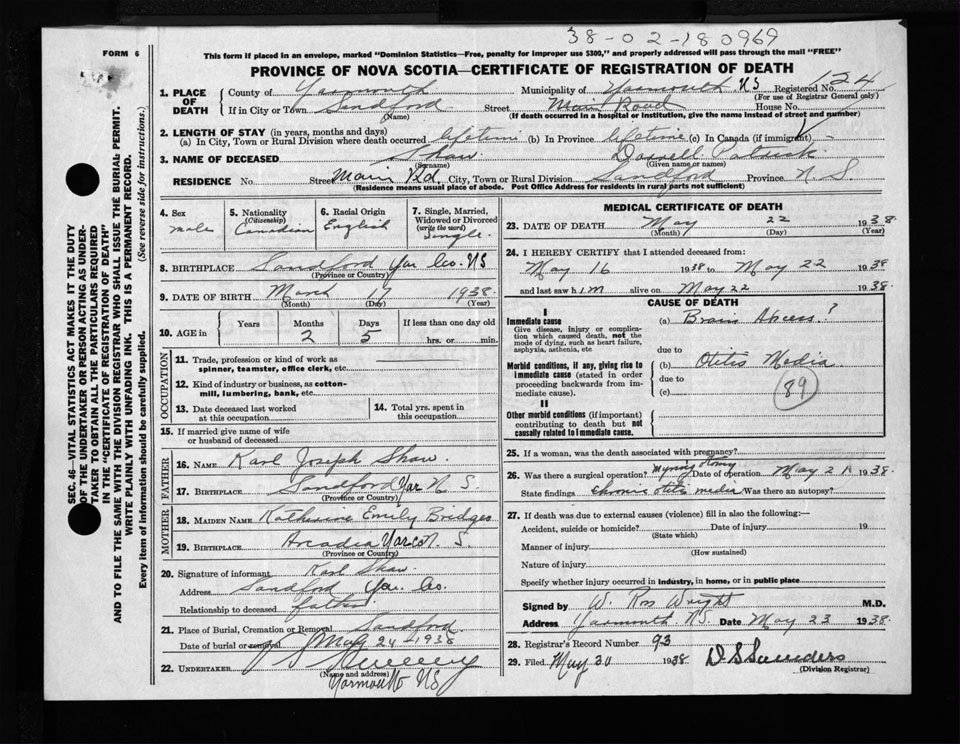 38-02-180969
FORM 6
This form if placed in an envelope, marked "Dominion Statistics—Free, penalty for improper use $300," and properly addressed will pass through the mail "FREE"
PROVINCE OF NOVA SCOTIA—CERTIFICATE OF REGISTRATION OF DEATH
1. PLACE OF DEATH County of Yarmouth Municipality of Yarmouth NS Registered No. 124
(For use of Registrar General only)
If in City or Town Sandford Street Main Road House No.
(Name) (If death occurred in a hospital or institution, give the name instead of street and number)
2. LENGTH OF STAY (in years, months and days)
(a) In City, Town or Rural Division where death occurred lifetime (b) In Province lifetime (c) In Canada (if immigrant)
3. NAME OF DECEASED Shaw Darrell Patrick
(Surname) (Given name or names)
RESIDENCE No. Street Main Rd. City, Town or Rural Division Sandford Province N. S.
(Residence means usual place of abode. Post Office Address for residents in rural parts not sufficient)
4. Sex male
5. Nationality (Citizenship) Canadian
6. Racial Origin English
7. Single, Married, Widowed or Divorced (write the word) Single.
8. BIRTHPLACE Sandford Yar Co. NS
(Province or Country)
9. DATE OF BIRTH March 17 1938
(Month) (Day) (Year)
10. AGE in Years Months 2 Days 5 If less than one day old hrs. or min.
OCCUPATION
11. Trade, profession or kind of work as spinner, teamster, office clerk, etc.
12. Kind of industry or business, as cotton-mill, lumbering, bank, etc.
13. Date deceased last worked at this occupation
14. Total yrs. spent in this occupation
15. If married give name of wife or husband of deceased
FATHER
16. NAME Karl Joseph Shaw.
17. BIRTHPLACE Sandford Yar N. S.
(Province or Country)
MOTHER
18. MAIDEN NAME Katherine Emily Bridges
19. BIRTHPLACE Arcadia Yar Co N. S.
(Province or Country)
20. Signature of informant Karl Shaw.
Address Sandford Yar. Co.
Relationship to deceased father
21. Place of Burial, Cremation or Removal Sandford
Date of burial or removal May 24-1938
22. UNDERTAKER
(Name and address)
Yarmouth NS
MEDICAL CERTIFICATE OF DEATH
23. DATE OF DEATH May 22 1938.
(Month) (Day) (Year)
24. I HEREBY CERTIFY that I attended deceased from:
May 16 1938 to May 22 1938
and last saw him alive on May 22 1938.
CAUSE OF DEATH
I
Immediate cause
Give disease, injury or complication which caused death, not the mode of dying, such as heart failure, asphyxia, asthenia, etc
(a) Brain Abcess?
due to
Morbid conditions, if any, giving rise to immediate cause (stated in order proceeding backwards from immediate cause).
(b) Otitis Media
due to
(c)
89
II
Other morbid conditions (if important) contributing to death but not causally related to immediate cause.
25. If a woman, was the death associated with pregnancy?
26. Was there a surgical operation? Myringotomy Date of operation May 21 1938.
State findings chronic otitis media Was there an autopsy?
27. If death was due to external causes (violence) fill in also the following:—
Accident, suicide or homicide? Date of injury 19
(State which)
Manner of injury
(How sustained)
Nature of injury
Specify whether injury occurred in industry, in home, or in public place
Signed by W. Ros Wright M.D.
Address Yarmouth N.S. Date May 23 1938.
28. Registrar's Record Number 93
29. Filed May 30 1938 D S Saunders
(Division Registrar)
SEC. 46—VITAL STATISTICS ACT MAKES IT THE DUTY
OF THE UNDERTAKER OR PERSON ACTING AS UNDER-
TAKER TO OBTAIN ALL THE PARTICULARS REQUIRED
IN THE "CERTIFICATE OF REGISTRATION OF DEATH"
AND TO FILE THE SAME WITH THE DIVISION REGISTRAR WHO SHALL ISSUE THE BURIAL PERMIT.
WRITE PLAINLY WITH UNFADING INK. THIS IS A PERMANENT RECORD.
Every item of information should be carefully supplied. (See reverse side for instructions.)